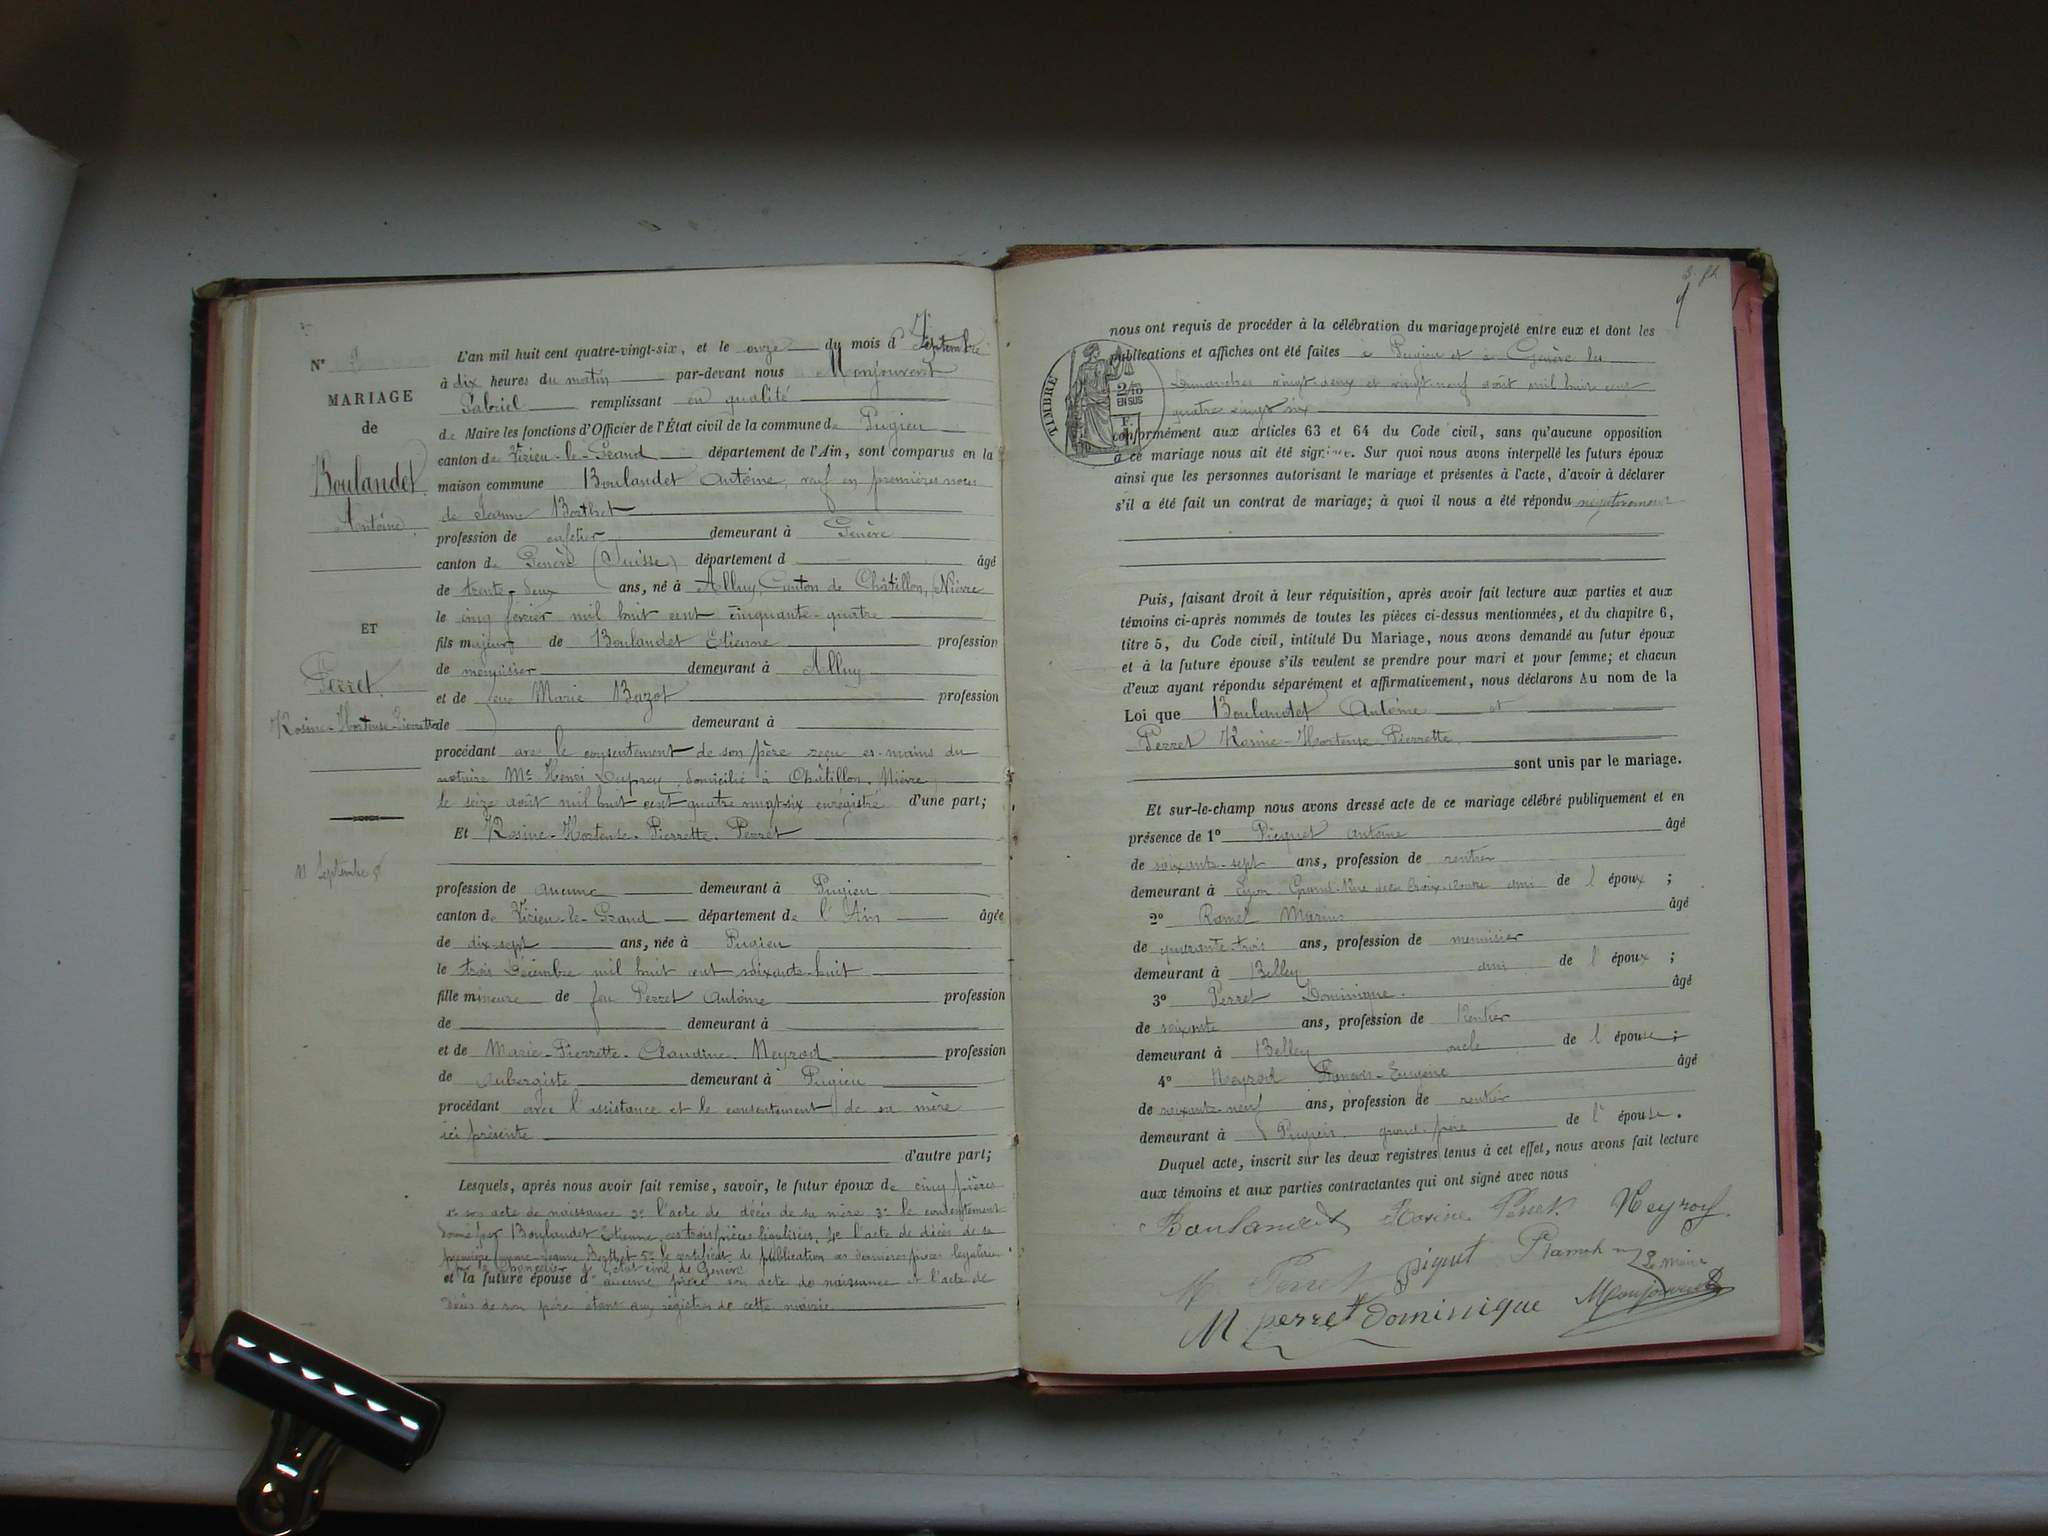 N°
MARIAGE
de
Boulandet
Antoine
ET
Perret
Rosine-Hortense-Pierrette
11 Septembre
L'an mil huit cent quatre-vingt-six, et le onze du mois d Septembre
à dix heures du matin par-devant nous Monjouvent
Gabriel remplissant en qualité
de Maire les fonctions d'Officier de l'État civil de la commune de Pugieu
canton de Virieu-le-Grand département de l'Ain, sont comparus en la
maison commune Boulandet Antoine, veuf en premières noces
de Jeanne Berthet
profession de cafetier demeurant à Genève
canton de Genève (Suisse) département d âgé
de trente-deux ans, né à Alluy, Canton de Châtillon, Nièvre
le cinq février mil huit cent cinquante-quatre
fils majeur de Boulandet Etienne profession
de menuisier demeurant à Alluy
et de feue Marie Bazot profession
de demeurant à
procédant avec le consentement de son père reçu es-mains du
notaire Me Henri Duprey, domicilié à Châtillon, Nièvre,
le seize août mil huit cent quatre vingt-six enregistré d'une part;
Et Rosine-Hortense-Pierrette Perret
profession de aucune demeurant à Pugieu
canton de Virieu-le-Grand département de l'Ain âgée
de dix-sept ans, née à Pugieu
le trois Décembre mil huit cent soixante-huit
fille mineure de feu Perret Antoine profession
de demeurant à
et de Marie-Pierrette-Claudine Neyrod profession
de aubergiste demeurant à Pugieu
procédant avec l'assistance et le consentement de sa mère
ici présente
d'autre part;
Lesquels, après nous avoir fait remise, savoir, le futur époux de cinq pièces
1° son acte de naissance 2° l'acte de décès de sa mère 3° le consentement
donné par Boulandet Etienne, ces trois pièces légalisées, 4° l'acte de décès de sa
première femme Jeanne Berthet 5° le certificat de publication ces dernières pièces légalisées
par le Chancelier de l'état civil de Genève
et la future épouse d'aucune pièce son acte de naissance et l'acte de
décès de son père étant aux registres de cette mairie
TIMBRE
2/10
EN SUS
nous ont requis de procéder à la célébration du mariage projeté entre eux et dont les
publications et affiches ont été faites à Pugieu et à Genève les
Dimanches vingt-deux et vingt-neuf août mil huit cent
quatre vingt six
conformément aux articles 63 et 64 du Code civil, sans qu'aucune opposition
à ce mariage nous ait été signifiée. Sur quoi nous avons interpellé les futurs époux
ainsi que les personnes autorisant le mariage et présentes à l'acte, d'avoir à déclarer
s'il a été fait un contrat de mariage; à quoi il nous a été répondu négativement
Puis, faisant droit à leur réquisition, après avoir fait lecture aux parties et aux
témoins ci-après nommés de toutes les pièces ci-dessus mentionnées, et du chapitre 6,
titre 5, du Code civil, intitulé Du Mariage, nous avons demandé au futur époux
et à la future épouse s'ils veulent se prendre pour mari et pour femme; et chacun
d'eux ayant répondu séparément et affirmativement, nous déclarons Au nom de la
Loi que Boulandet Antoine et
Perret Rosine-Hortense-Pierrette
sont unis par le mariage.
Et sur-le-champ nous avons dressé acte de ce mariage célébré publiquement et en
présence de 1° Picquet Antoine âgé
de soixante-sept ans, profession de rentier
demeurant à Lyon Grand-Rue de la Croix-rousse ami de l'époux ;
2° Ramel Marius âgé
de quarante trois ans, profession de menuisier
demeurant à Belley ami de l'époux ;
3° Perret Dominique. âgé
de soixante ans, profession de Rentier
demeurant à Belley oncle de l'épouse ;
4° Neyrod François-Eugène âgé
de soixante-neuf ans, profession de rentier
demeurant à Pugieu grand-père de l'épouse.
Duquel acte, inscrit sur les deux registres tenus à cet effet, nous avons fait lecture
aux témoins et aux parties contractantes qui ont signé avec nous
Boulandet Rosine Perret Neyrod
M Perret piquet Ramel Le maire
M perret dominique Monjouvent